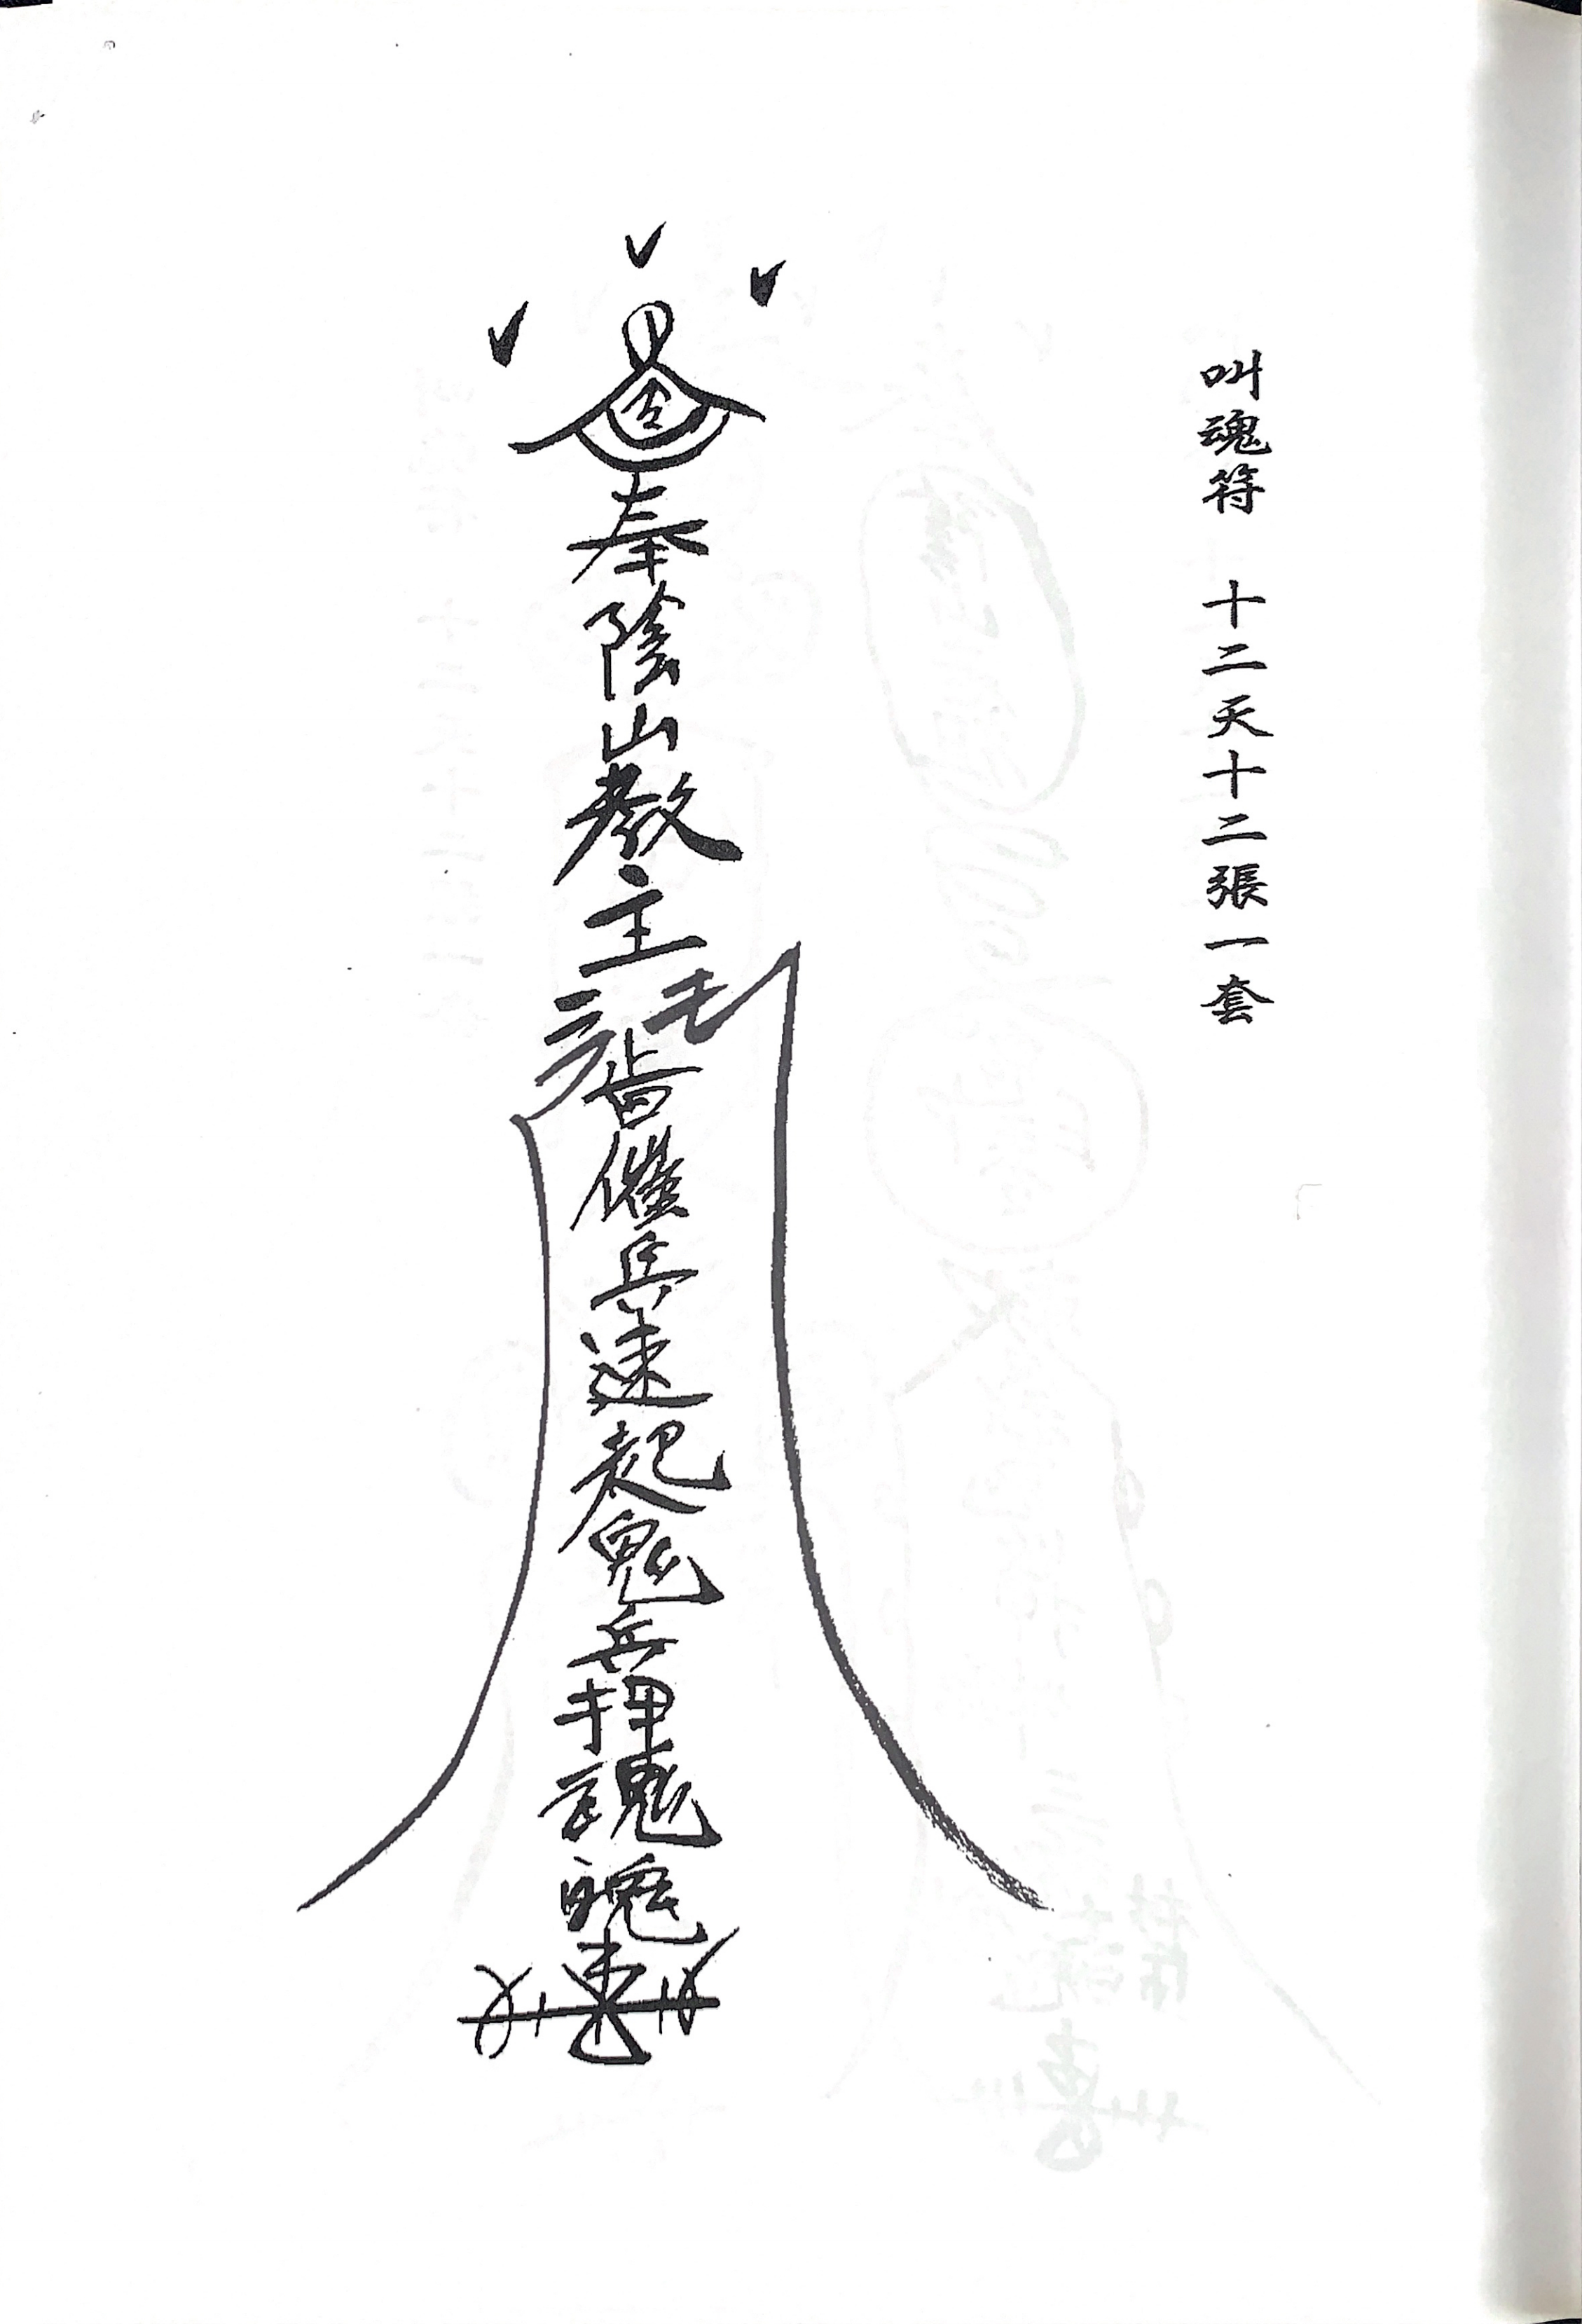 叫魂符 十二天十二張一套
奉陰山教主旨催兵速起鬼兵押魂魄